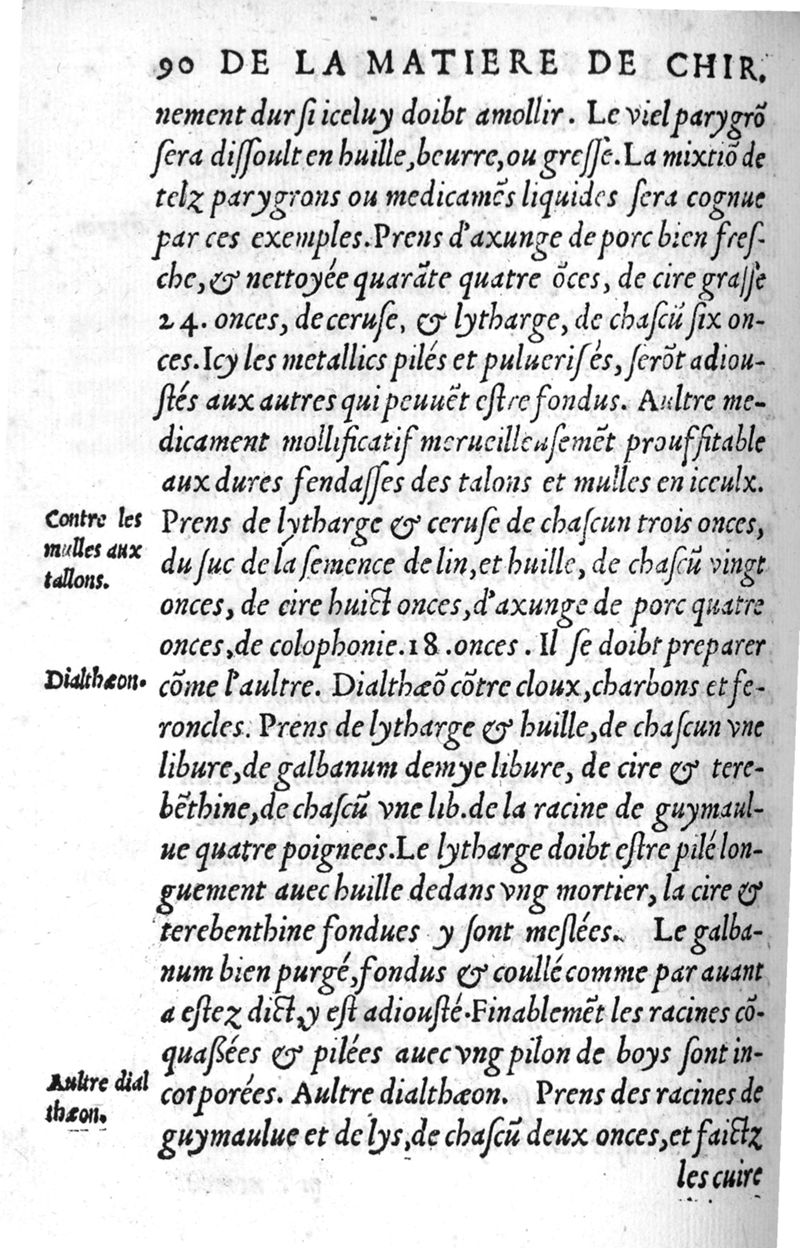 90 DE LA MATIERE DE CHIR.
nement dur ſi iceluy doibt amollir. Le viel parygrõ
ſera diſſoult en huille, beurre, ou greſſe. La mixtiõ de
telz parygrons ou medicamẽs liquides ſera cognue
par ces exemples. Prens d'axunge de porc bien freſ-
che, & nettoyée quarãte quatre õces, de cire graſſe
24. onces, de ceruſe, & lytharge, de chaſcũ ſix on-
ces. Icy les metallics pilés et pulueriſés, ſerõt adiou-
ſtés aux autres qui peuuẽt eſtre fondus. Aultre me-
dicament mollificatif merueilleuſemẽt prouffitable
aux dures fendaſſes des talons et mulles en iceulx.
Contre les
mulles aux
tallons.
Prens de lytharge & ceruſe de chaſcun trois onces,
du ſuc de la ſemence de lin, et huille, de chaſcũ vingt
onces, de cire huict onces, d'axunge de porc quatre
onces, de colophonie. 18. onces. Il ſe doibt preparer
Dialthæon.
cõme l'aultre. Dialthæõ cõtre cloux, charbons et fe-
roncles. Prens de lytharge & huille, de chaſcun vne
libure, de galbanum demye libure, de cire & tere-
bẽthine, de chaſcũ vne lib. de la racine de guymaul-
ue quatre poignees. Le lytharge doibt eſtre pilé lon-
guement auec huille dedans vng mortier, la cire &
terebenthine fondues y ſont meſlées. Le galba-
num bien purgé, fondus & coullé comme par auant
a eſtez dict, y eſt adiouſté. Finablemẽt les racines cõ-
quaſſées & pilées auec vng pilon de boys ſont in-
Aultre dial
thæon.
corporées. Aultre dialthæon. Prens des racines de
guymaulue et de lys, de chaſcũ deux onces, et faictz
les cuire